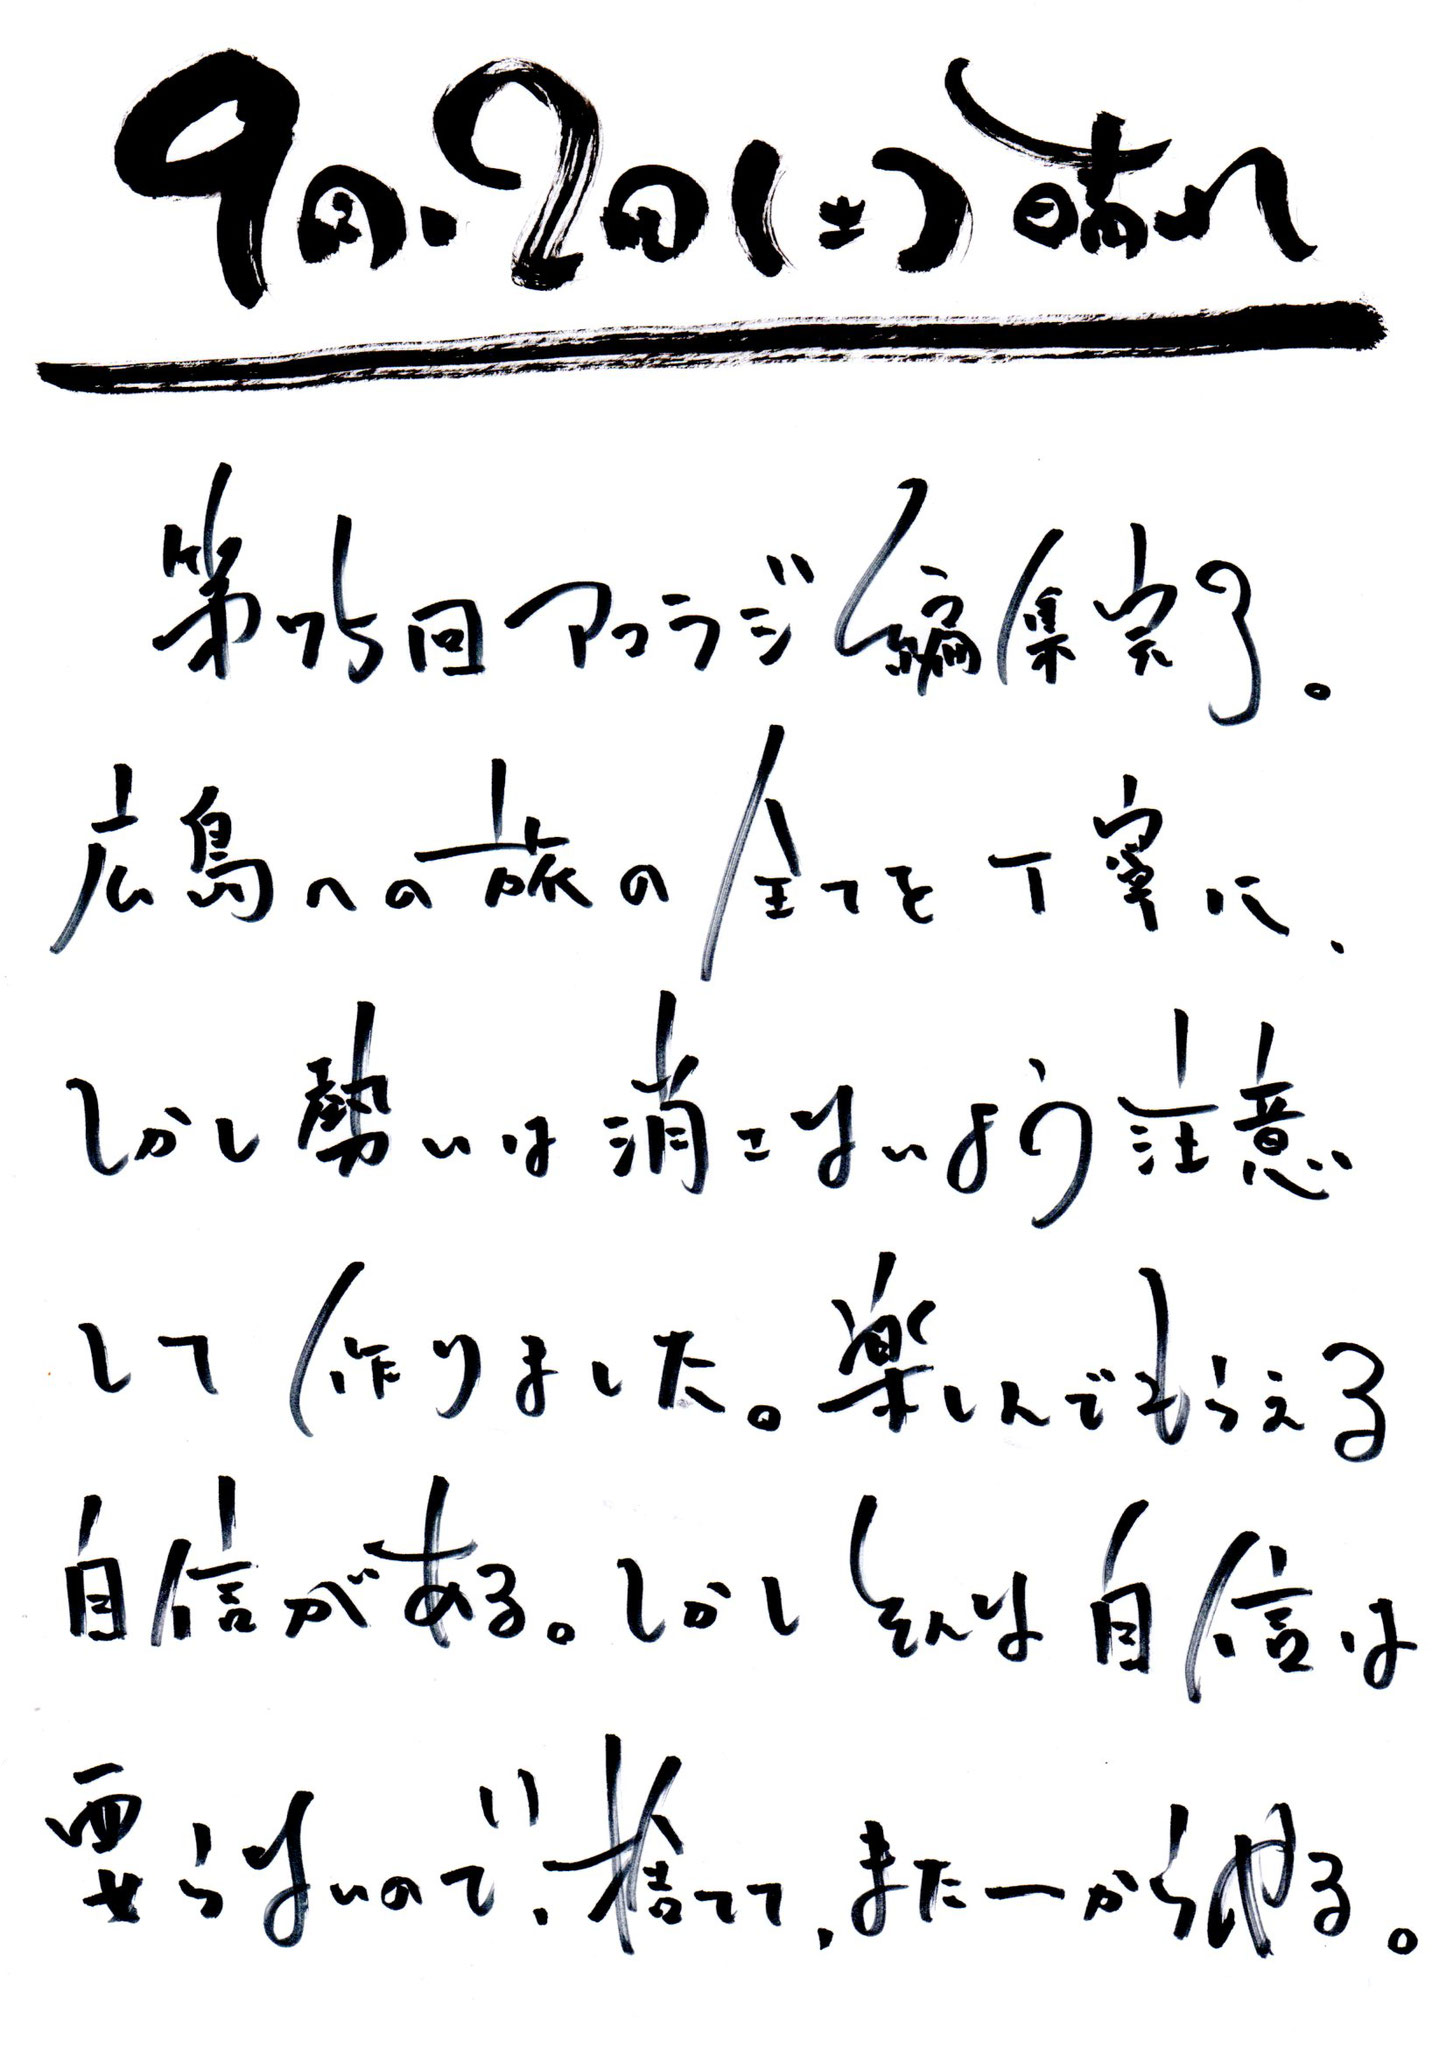 9月2日(土)晴れ
第75回アコラジ編集完了。
広島への旅の全てを丁寧に、
しかし勢いは消さないよう注意
して作りました。楽しんでもらえる
自信がある。しかしそんな自信は
要らないので、捨てて、また一からやる。